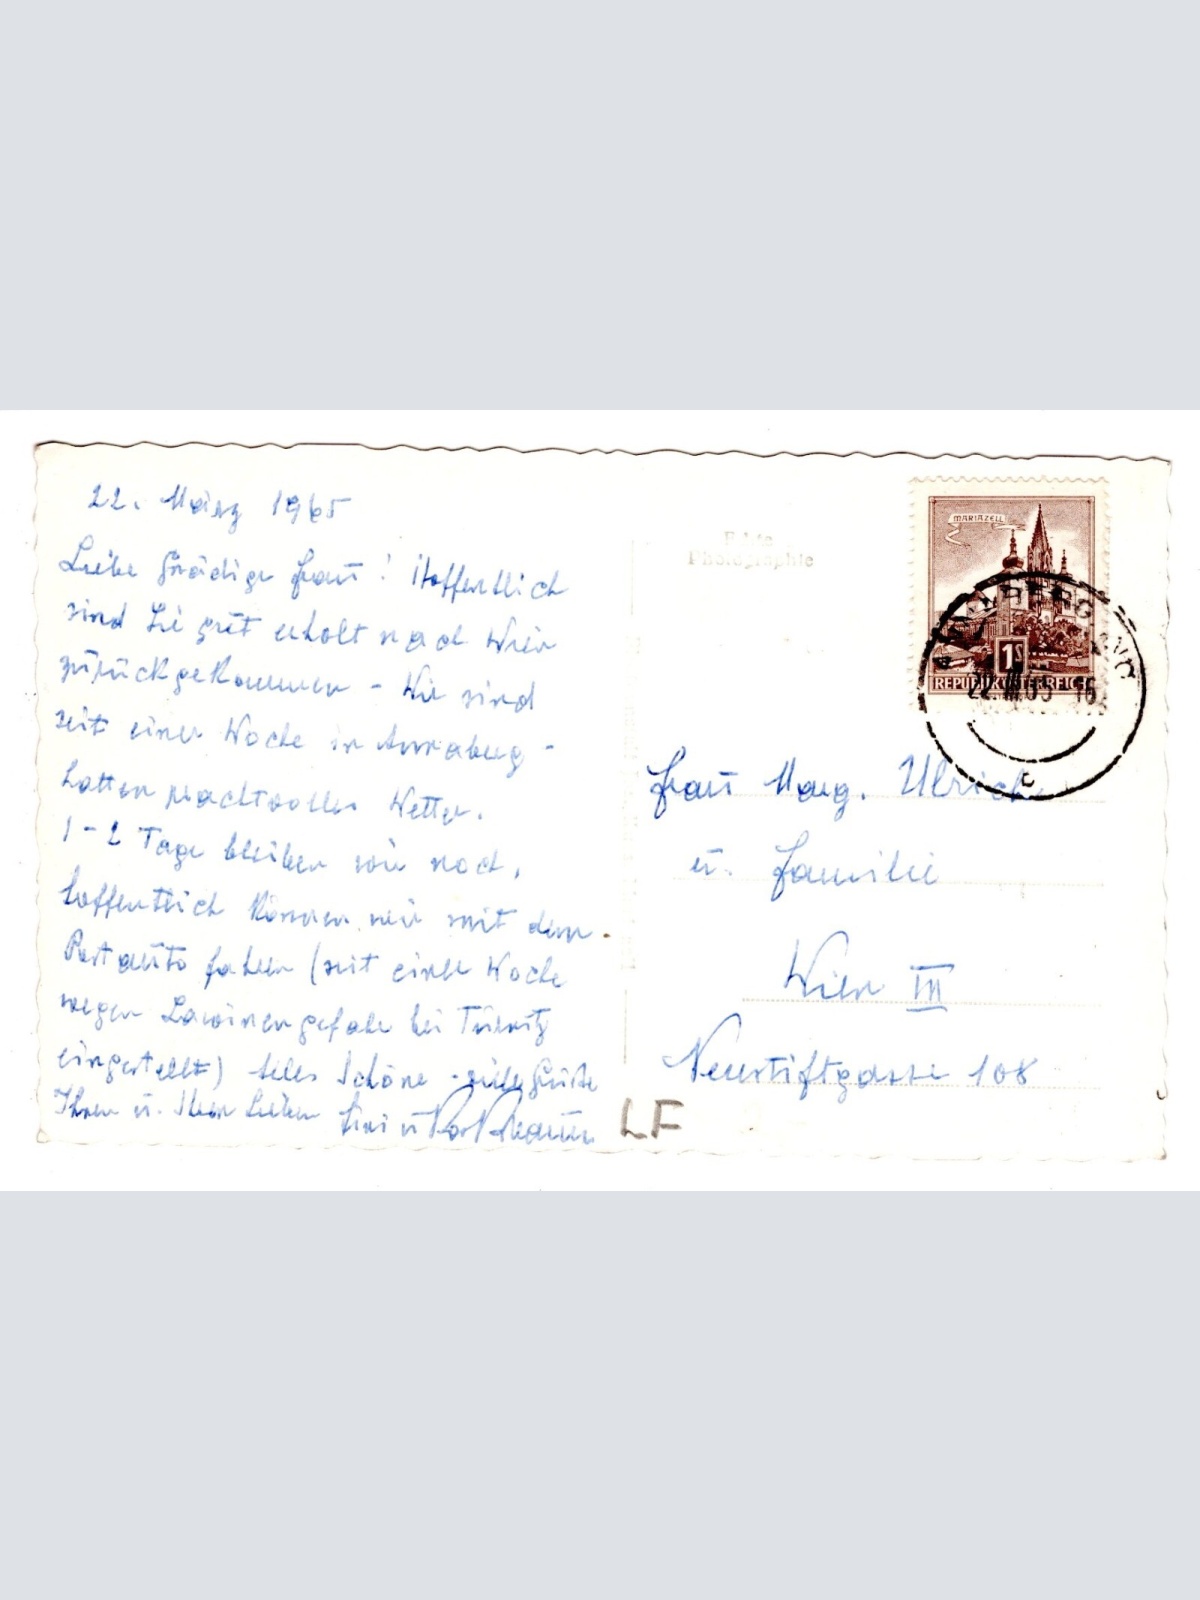 22. März 1965
Liebe Gnädige Frau! Hoffentlich
sind Sie gut erholt nach Wien
zurückgekommen - Wir sind
seit einer Woche in Annaberg -
hatten prachtvolles Wetter.
1-2 Tage bleiben wir noch,
hoffentlich können wir mit dem
Postauto fahren (seit einer Woche
wegen Lawinengefahr bei Türnitz
eingestellt) Alles Schöne - viele Grüße
Ihnen u. Ihren Lieben
LF
Echte
Photographie
MARIAZELL
1S
REPUBLIK ÖSTERREICH
ANNABERG
22.III.65 16
c
Frau Marg. Ulrich
u. Familie
Wien III
Neustiftgasse 108